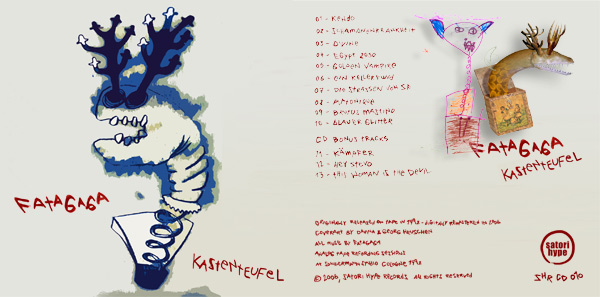 FATAGAGA
KASTENTEUFEL
01 - KENDO
03 - D'VINE
04 - EGYPT 2030
05 - GOLDEN VAMPIRE
06 - EIN KELLERWEG
07 - DIE STRASSEN VON S.F.
09 - BRUTUS MASTINO
10 - BLAUER GLITTER
CD BONUS TRACKS
11 - KÄMPFER
12 - HEY STEVO
13 - THIS WOMAN IS THE DEVIL
FATAGAGA
KASTENTEUFEL
ORIGINALLY RELEASED ON TAPE IN 1992 - DIGITALLY REMASTERED IN 2006
COVERART BY DANNA & GEORG HEUSCHEN
ALL MUSIC BY FATAGAGA
ANALOG TAPE RECORDING SESSIONS
STUDIO COLOGNE 1992
© 2006, SATORI HYPE RECORDS ALL RIGHTS RESERVED
satori
hype
SHR CD 010